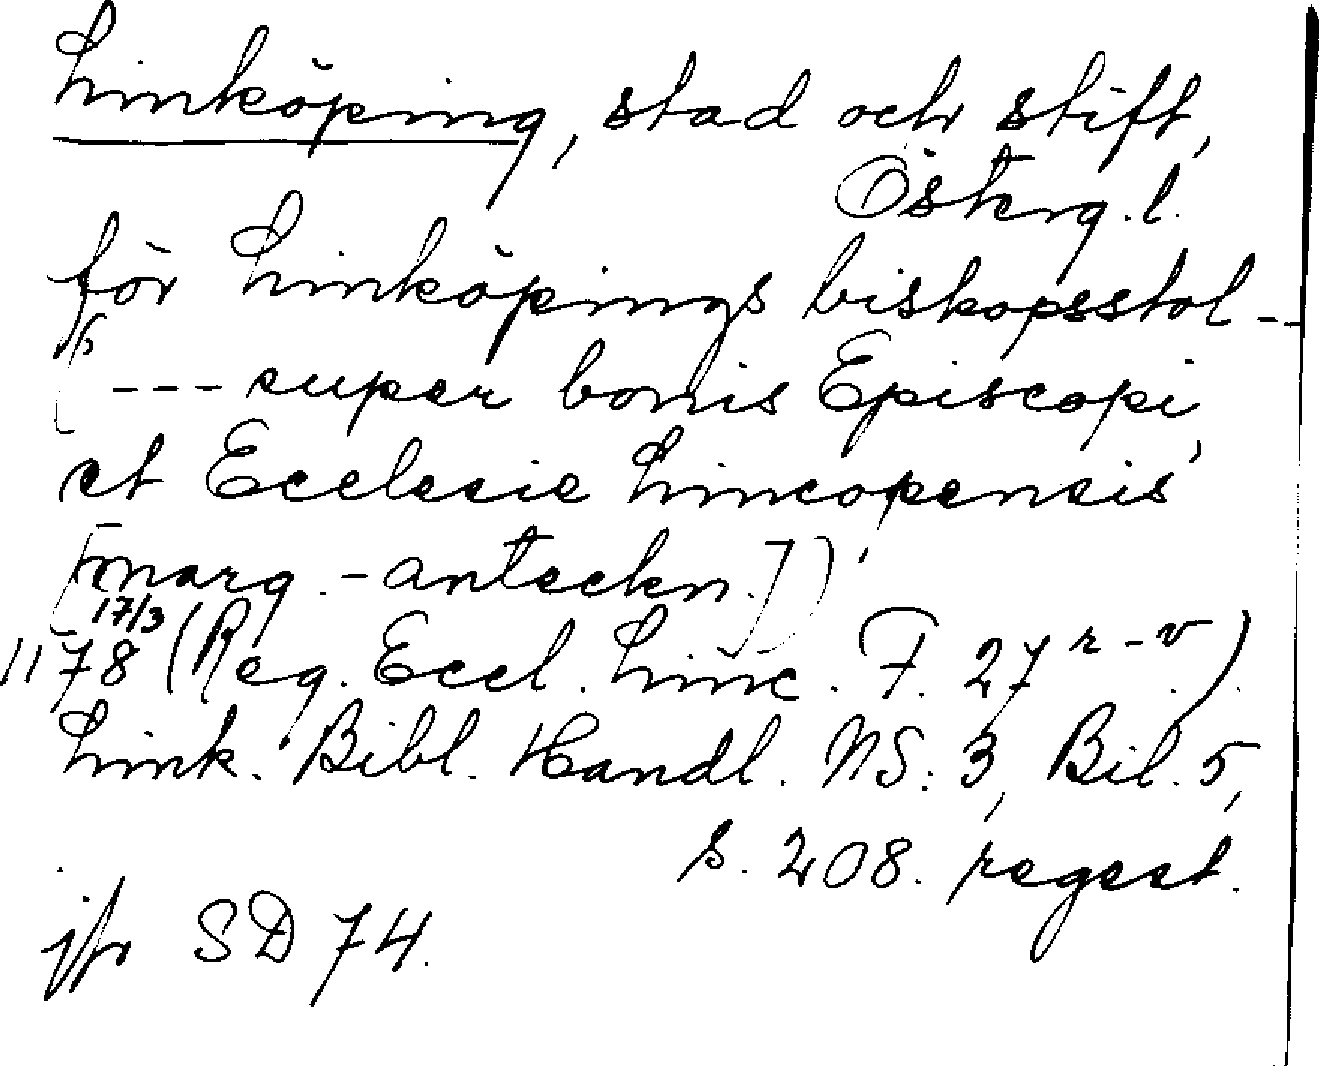 Linköping, stad och stift,
Österg.l.
för Linköpings biskopsstol --
( --- super bonis Episcopi
et Ecclesie Lincopensis,
[marg.-anteckn.]),
17/3
1178 (Reg. Eccl. Linc. F. 27 r-v).
Link. Bibl. Handl. NS: 3, Bil. 5,
s. 208. regest.
jfr SD 74.